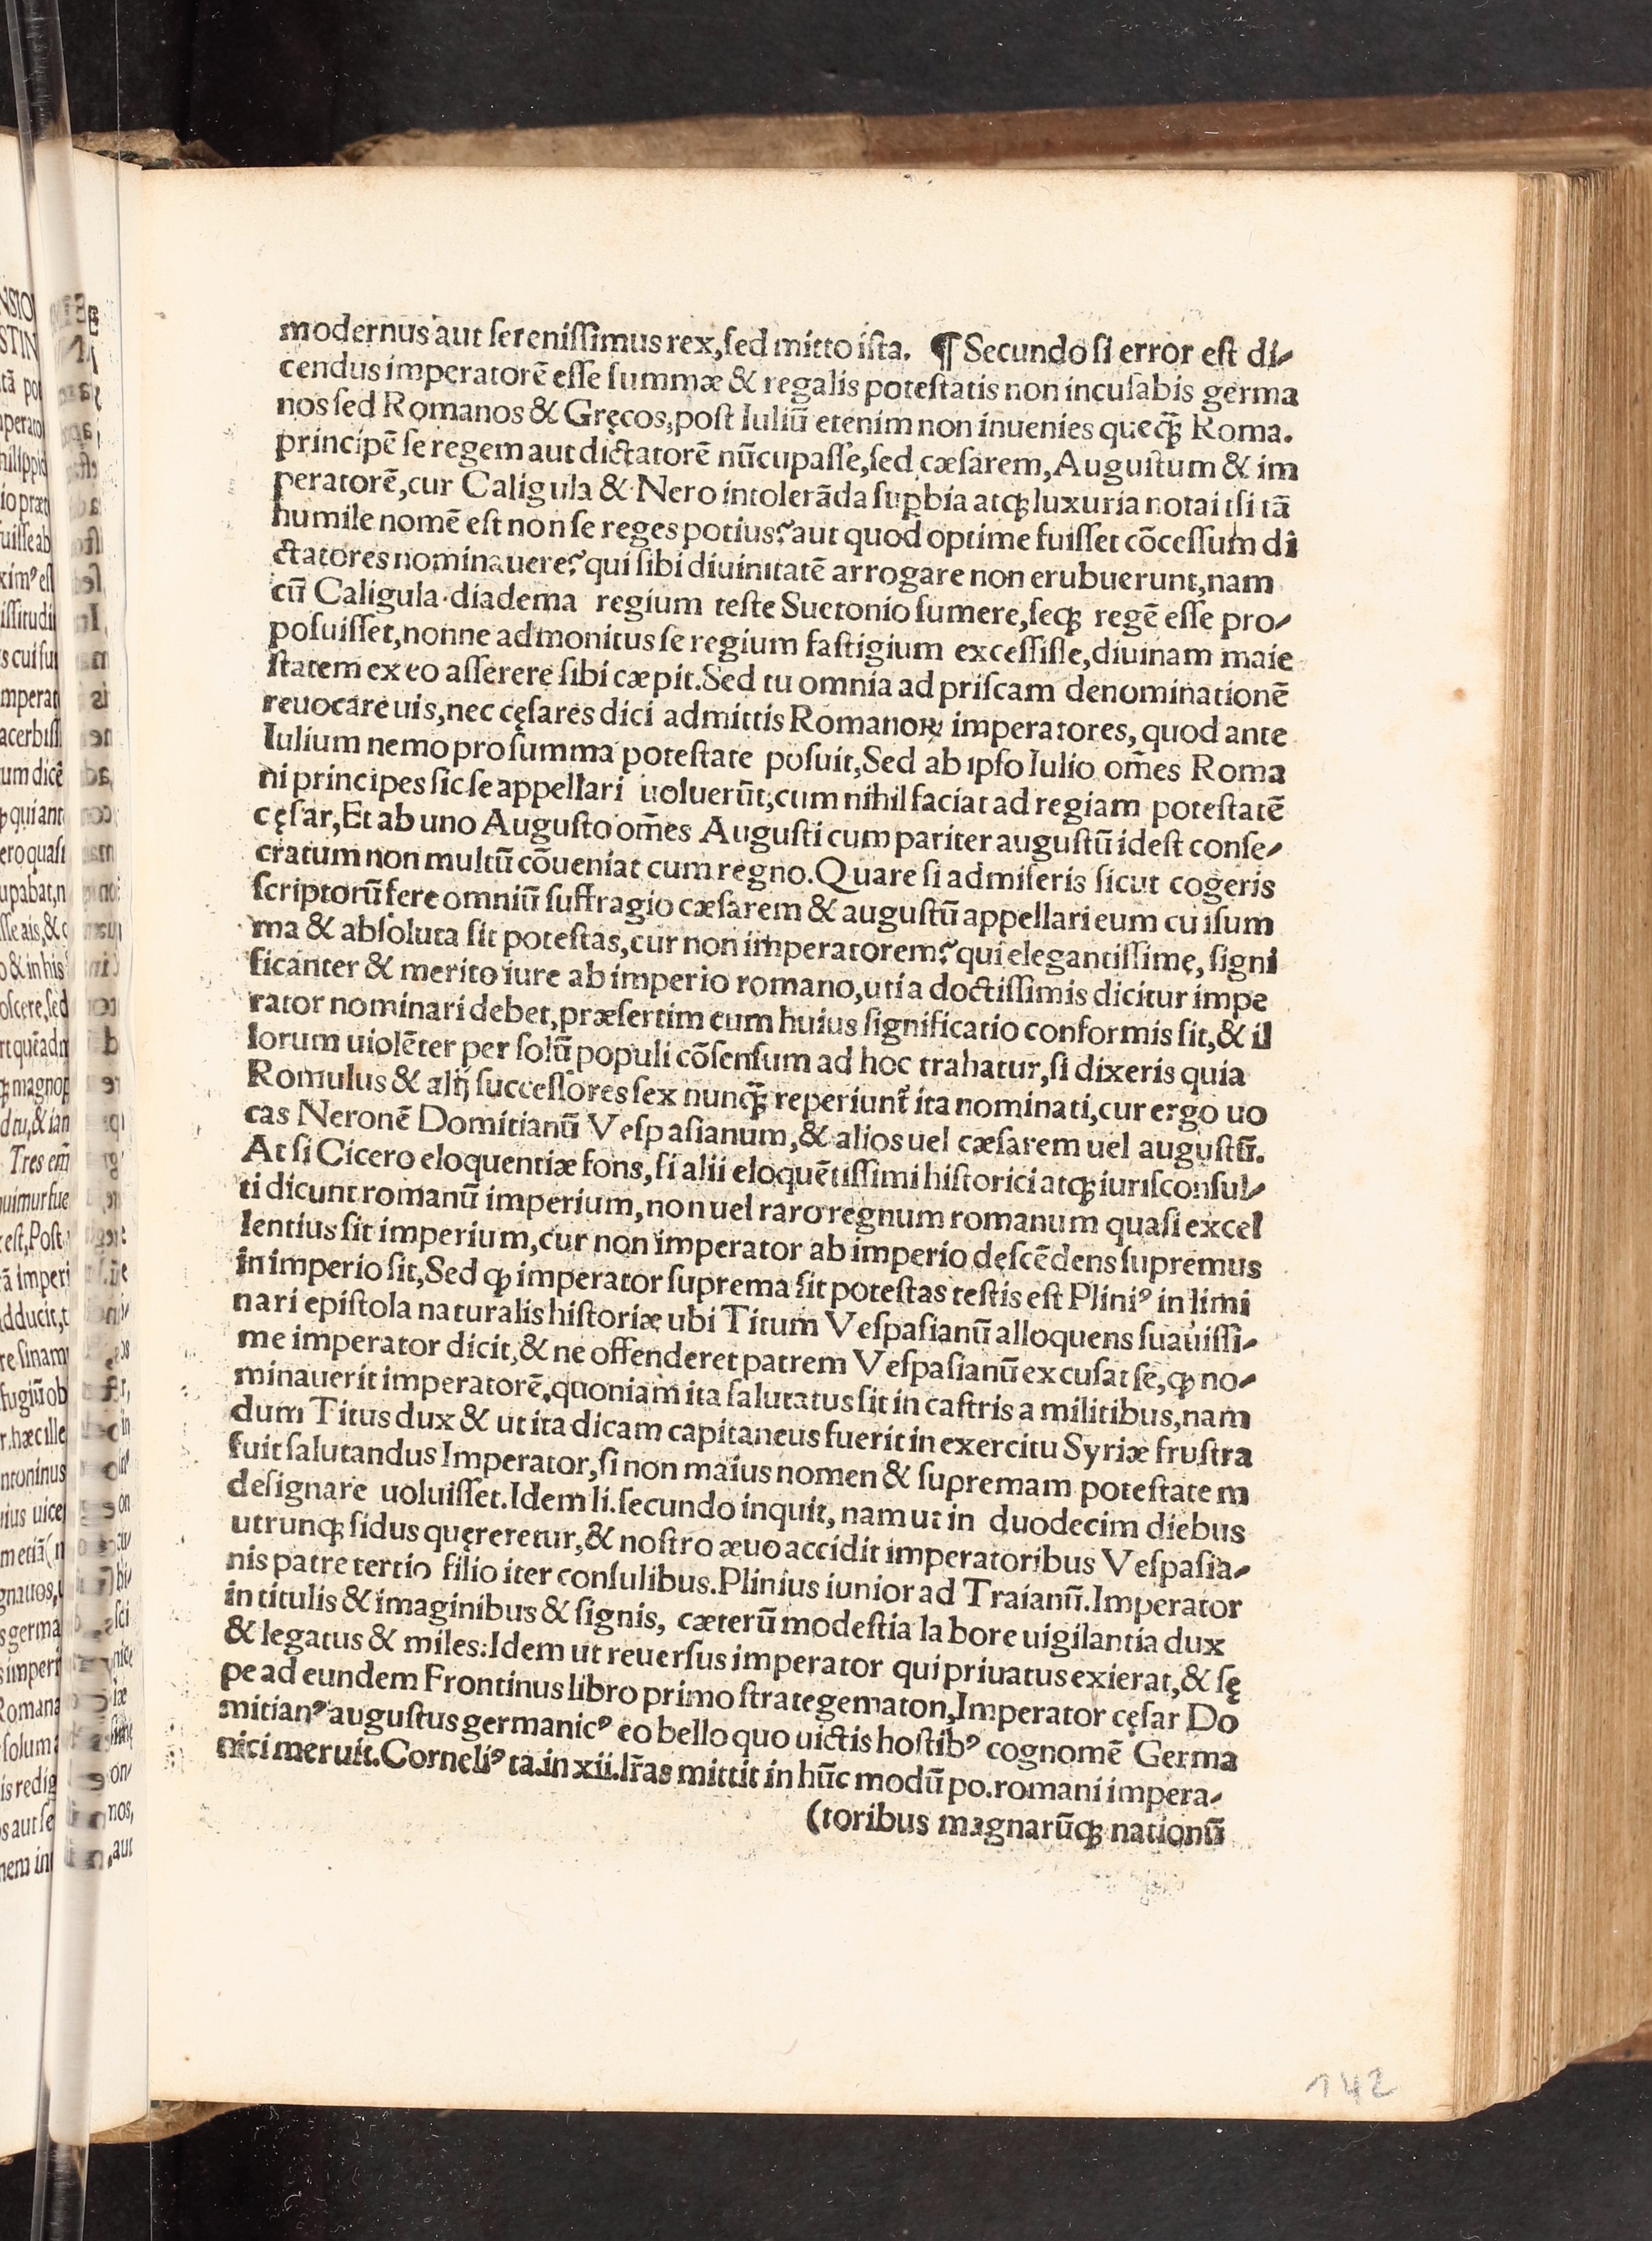 modernus aut serenissimus rex, sed mitto ista. ¶ Secundo si error est di-
cendus imperatorē esse summæ & regalis potestatis non incusabis germa
nos sed Romanos & Gręcos, post Iuliū etenim non inuenies queꝗ̈ꝫ Roma.
principē se regem aut dictatorē nūcupasse, sed cæsarem, Augustum & im
peratorē, cur Caligula & Nero intolerāda suꝑbia atqꝫ luxuria notai tsi tā
humile nomē est non se reges potius? aut quod optime fuisset cōcessum di
ctatores nominauere? qui sibi diuinitatē arrogare non erubuerunt, nam
cū Caligula diadema regium teste Suetonio sumere, seqꝫ regē esse pro-
posuisset, nonne admonitus se regium fastigium excessisse, diuinam maie
statem ex eo asserere sibi cæpit. Sed tu omnia ad priscam denominationē
reuocare uis, nec cęsares dici admittis Romanoꝝ imperatores, quod ante
Iulium nemo pro summa potestate posuit, Sed ab ipso Iulio om̄es Roma
ni principes sic se appellari uoluerūt, cum nihil faciat ad regiam potestatē
cęsar, Et ab uno Augusto om̄es Augusti cum pariter augustū idest conse-
cratum non multū cōueniat cum regno. Quare si admiseris sicut cogeris
scriptorū fere omniū suffragio cæsarem & augustū appellari eum cu isum
ma & absoluta sit potestas, cur non imperatorem? qui elegantissimę, signi
ficanter & merito iure ab imperio romano, uti a doctissimis dicitur impe
rator nominari debet, præsertim cum huius significatio conformis sit, & il
lorum uiolēter per solū populi cōsensum ad hoc trahatur, si dixeris quia
Romulus & alij successores sex nunꝗ̈ꝫ reperiunt̃ ita nominati, cur ergo uo
cas Neronē Domitianū Vespasianum, & alios uel cæsarem uel augustū.
At si Cicero eloquentiæ fons, si alii eloquētissimi historici atqꝫ iurisconsul-
ti dicunt romanū imperium, non uel raro regnum romanum quasi excel
lentius sit imperium, cur non imperator ab imperio descēdens supremus
in imperio sit, Sed ꝙ imperator suprema sit potestas testis est Pliniꝰ in limi
nari epistola naturalis historiæ ubi Titum Vespasianū alloquens suauissi-
me imperator dicit, & ne offenderet patrem Vespasianū excusat se, ꝙ no-
minauerit imperatorē, quoniam ita salutatus sit in castris a militibus, nam
dum Titus dux & ut ita dicam capitaneus fuerit in exercitu Syriæ frustra
fuit salutandus Imperator, si non maius nomen & supremam potestatem
designare uoluisset. Idem li. secundo inquit, nam ut in duodecim diebus
utrunqꝫ sidus quęreretur, & nostro æuo accidit imperatoribus Vespasia-
nis patre tertio filio iter consulibus. Plinius iunior ad Traianū. Imperator
in titulis & imaginibus & signis, cæterū modestia labore uigilantia dux
& legatus & miles: Idem ut reuersus imperator qui priuatus exierat, & sę
pe ad eundem Frontinus libro primo strategematon, Imperator cęsar Do
mitianꝰ augustus germanicꝰ eo bello quo uictis hostibꝰ cognomē Germa
nici meruit. Corneliꝰ ta. in xii. lr̄as mittit in hūc modū po. romani impera-
(toribus magnarūqꝫ nationū
142